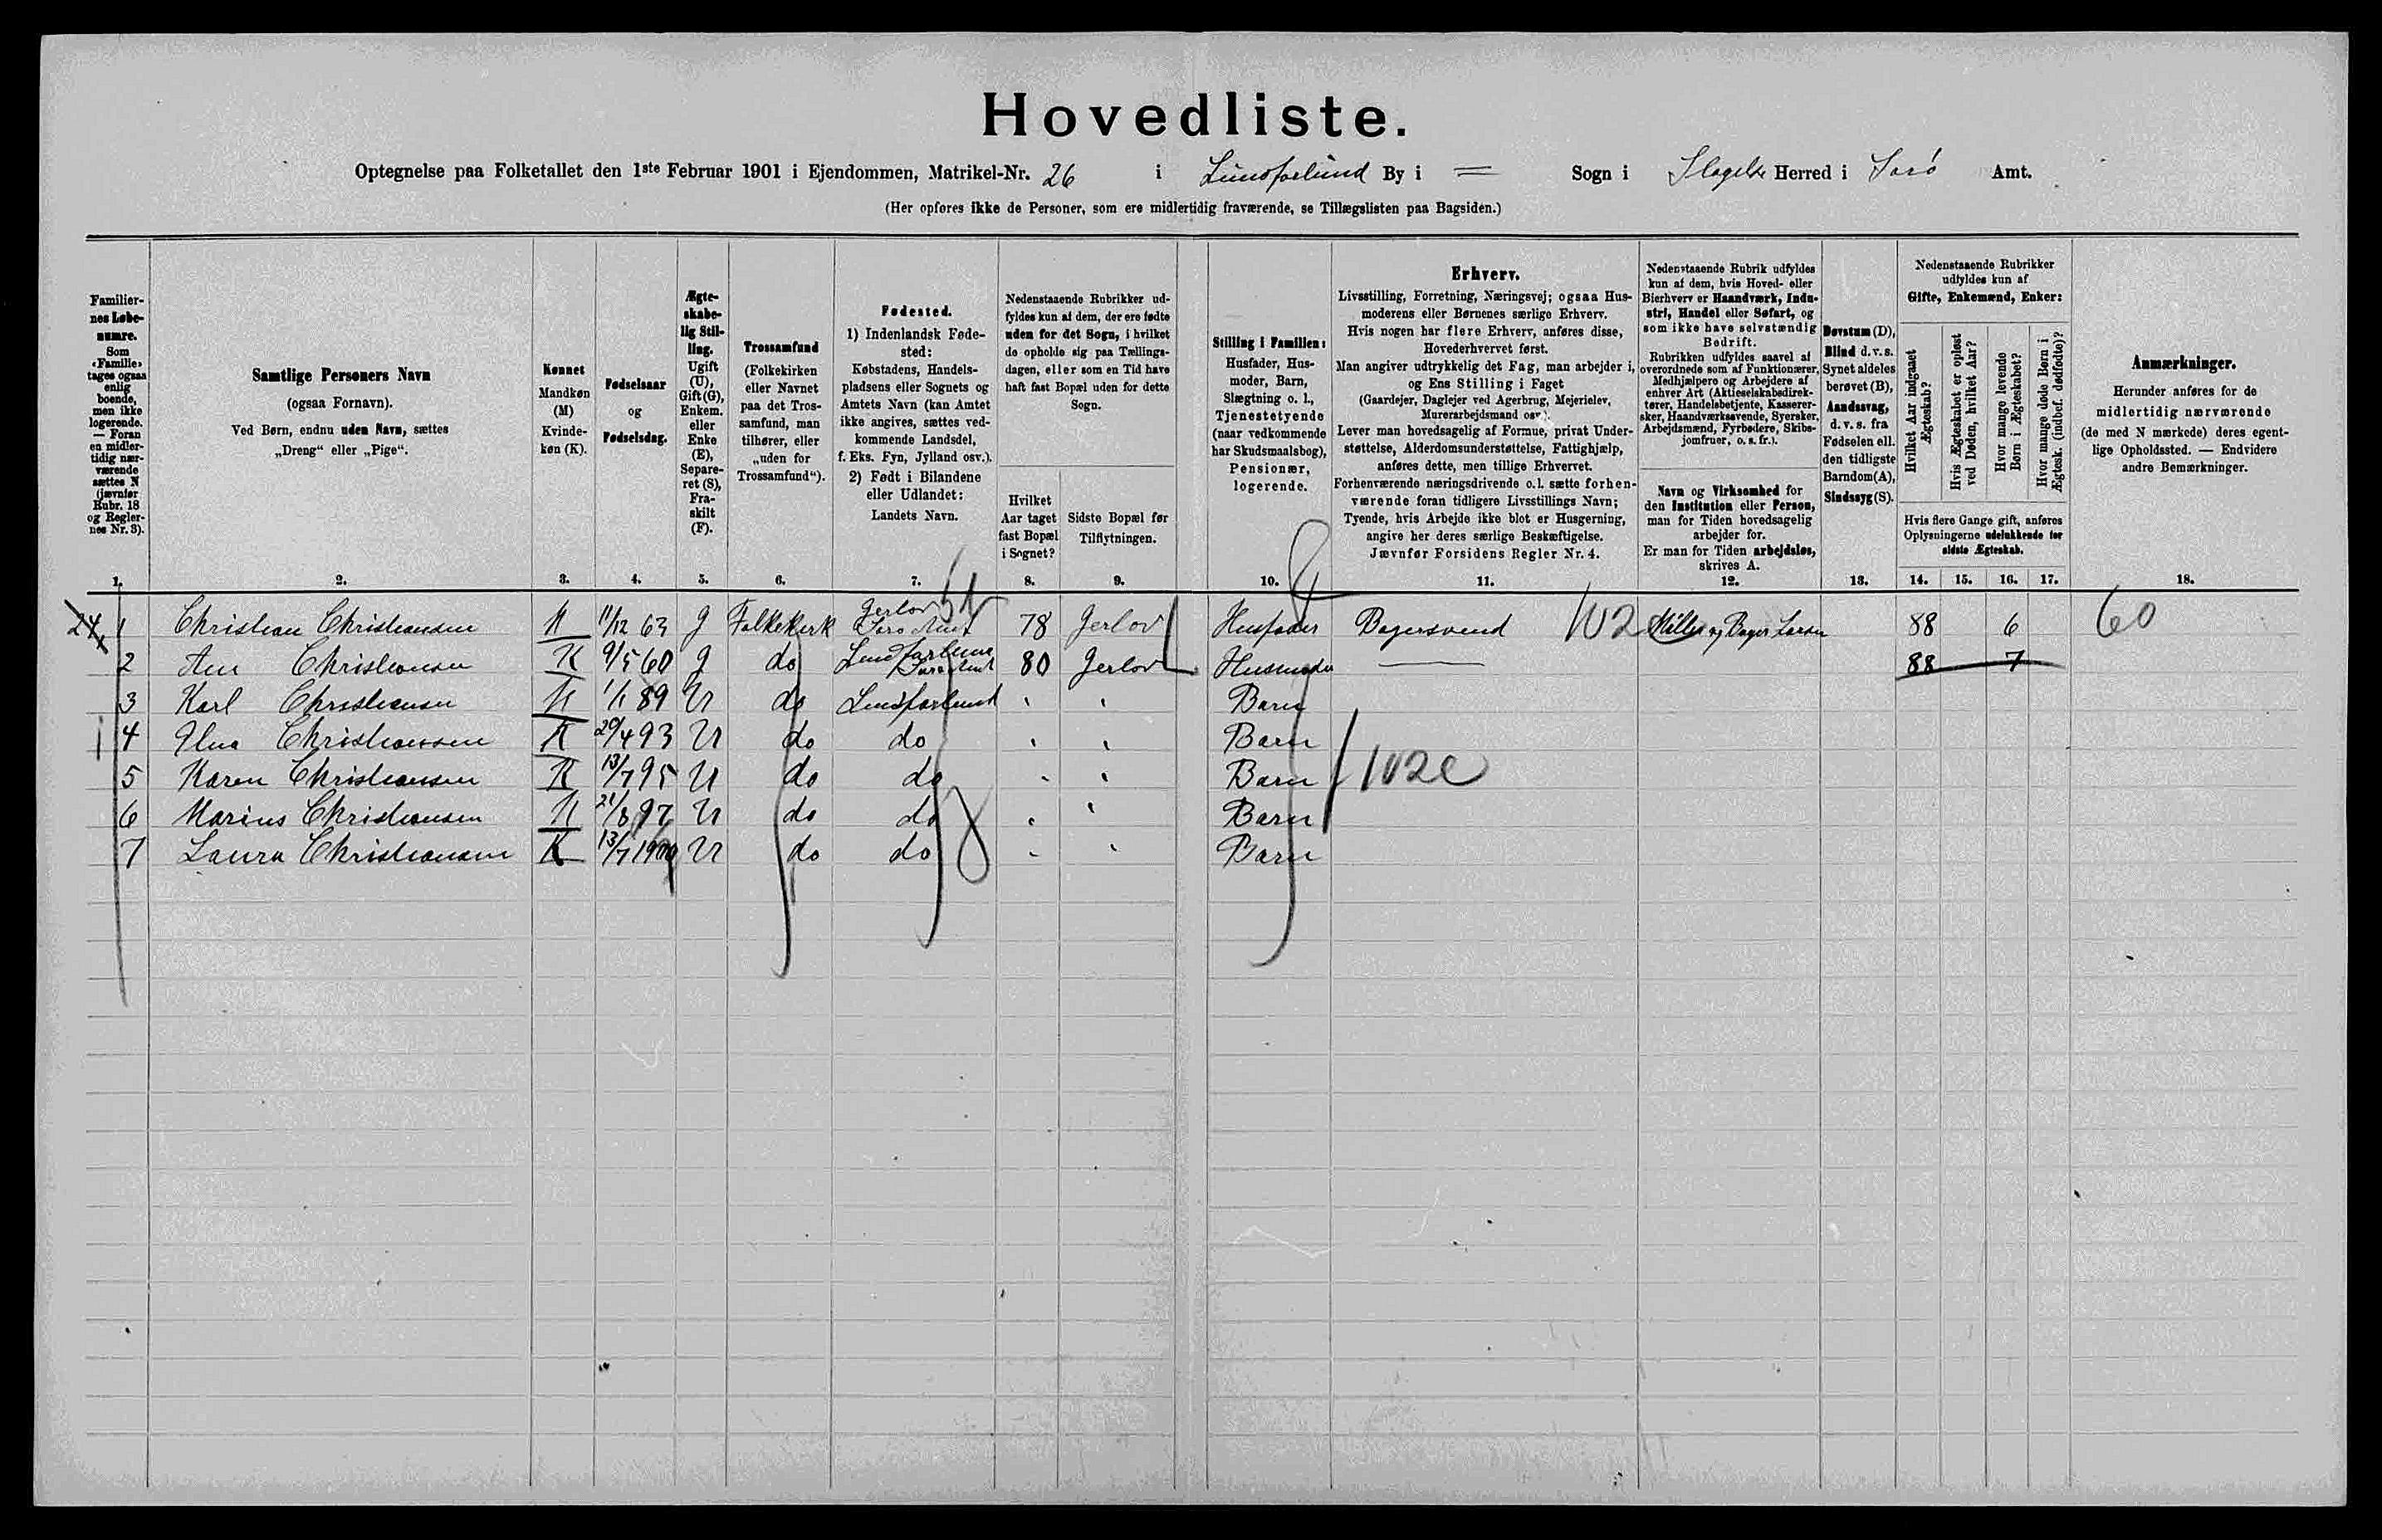 Hovedliste.
Optegnelse paa Folketallet den 1ste Februar 1901 i Ejendommen, Matrikel-Nr. 26 i Lundforlund By i = Sogn i Slagelse Herred i Sorø Amt.
(Her opføres ikke de Personer, som ere midlertidig fraværende, se Tillægslisten paa Bagsiden.)
Familier-
nes Løbe-
numre.
Som
«Familie»
tages ogsaa
enlig
boende,
men ikke
logerende.
— Foran
en midler-
tidig nær-
værende
sættes N
(jævnfør
Rubr. 18
og Regler-
nes Nr. 3).
1.
Samtlige Personers Navn
(ogsaa Fornavn).
Ved Børn, endnu uden Navn, sættes
„Dreng“ eller „Pige“.
2.
Kønnet
Mandkøn
(M)
Kvinde-
køn (K).
3.
Fødselsaar
og
Fødselsdag.
4.
Ægte-
skabe-
lig Stil-
ling.
Ugift
(U),
Gift(G),
Enkem.
eller
Enke
(E),
Separe-
ret (S),
Fra-
skilt
(F).
5.
Trossamfund
(Folkekirken
eller Navnet
paa det Tros-
samfund, man
tilhører, eller
„uden for
Trossamfund“).
6.
Fødested.
1) Indenlandsk Føde-
sted:
Købstadens, Handels-
pladsens eller Sognets og
Amtets Navn (kan Amtet
ikke angives, sættes ved-
kommende Landsdel,
f. Eks. Fyn, Jylland osv.).
2) Født i Bilandene
eller Udlandet:
Landets Navn.
7.
Nedenstaaende Rubrikker ud-
fyldes kun af dem, der ere fødte
uden for det Sogn, i hvilket
de opholde sig paa Tællings-
dagen, eller som en Tid have
haft fast Bopæl uden for dette
Sogn.
Hvilket
Aar taget
fast Bopæl
i Sognet?
8.
Sidste Bopæl før
Tilflytningen.
9.
Stilling i Familien:
Husfader, Hus-
moder, Barn,
Slægtning o. l.,
Tjenestetyende
(naar vedkommende
har Skudsmaalsbog),
Pensionær,
logerende.
10.
Erhverv.
Livsstilling, Forretning, Næringsvej; ogsaa Hus-
moderens eller Børnenes særlige Erhverv.
Hvis nogen har flere Erhverv, anføres disse,
Hovederhvervet først.
Man angiver udtrykkelig det Fag, man arbejder i,
og Ens Stilling i Faget
(Gaardejer, Daglejer ved Agerbrug, Mejerielev,
Murerarbejdsmand osv.).
Lever man hovedsagelig af Formue, privat Under-
støttelse, Alderdomsunderstøttelse, Fattighjælp,
anføres dette, men tillige Erhvervet.
Forhenværende næringsdrivende o.l. sætte forhen-
værende foran tidligere Livsstillings Navn;
Tyende, hvis Arbejde ikke blot er Husgerning,
angive her deres særlige Beskæftigelse.
Jævnfør Forsidens Regler Nr. 4.
11.
Nedenstaaende Rubrik udfyldes
kun af dem, hvis Hoved- eller
Bierhverv er Haandværk, Indu-
stri, Handel eller Søfart, og
som ikke have selvstændig
Bedrift.
Rubrikken udfyldes saavel af
overordnede som af Funktionærer,
Medhjælpere og Arbejdere af
enhver Art (Aktieselskabsdirek-
tører, Handelsbetjente, Kasserer-
sker, Haandværkssvende, Syersker,
Arbejdsmænd, Fyrbødere, Skibs-
jomfruer, o. s. fr.).
Navn og Virksomhed for
den Institution eller Person,
man for Tiden hovedsagelig
arbejder for.
Er man for Tiden arbejdsløs,
skrives A.
12.
Døvstum (D),
Blind d. v. s.
Synet aldeles
berøvet (B),
Aandssvag,
d. v. s. fra
Fødselen ell.
den tidligste
Barndom(A),
Sindssyg (S).
13.
Nedenstaaende Rubrikker
udfyldes kun af
Gifte, Enkemænd, Enker:
Hvilket Aar indgaaet
Ægteskab?
Hvis Ægteskabet er opløst
ved Døden, hvilket Aar?
Hvor mange levende
Børn i Ægteskabet?
Hvor mange døde Børn i
Ægtesk. (indbef. dødfødte)?
Hvis flere Gange gift, anføres
Oplysningerne udelukkende for
sidste Ægteskab.
14. 15. 16. 17.
Anmærkninger.
Herunder anføres for de
midlertidig nærværende
(de med N mærkede) deres egent-
lige Opholdssted. — Endvidere
andre Bemærkninger.
18.
24 1 Christian Christiansen M 11/12 63 G Folkekirk Gerlov Sorø Amt 78 Gerlov Husfader Bagersvend 102 Møller og Bager Larsen 88 6 60
2 Ane Christiansen K 9/5 60 G do Lundforlund Sorø Amt 80 Gerlov Husmoder — 88 7
3 Karl Christiansen M 1/1 89 U do Lundforlund " " Barn
4 Christiansen K 20/4 93 U do do " " Barn
5 Karen Christiansen K 13/7 95 U do do " " Barn 102e
6 Marius Christiansen M 21/8 97 U do do " " Barn
7 Laura Christiansen K 13/7 1900 U do do " " Barn